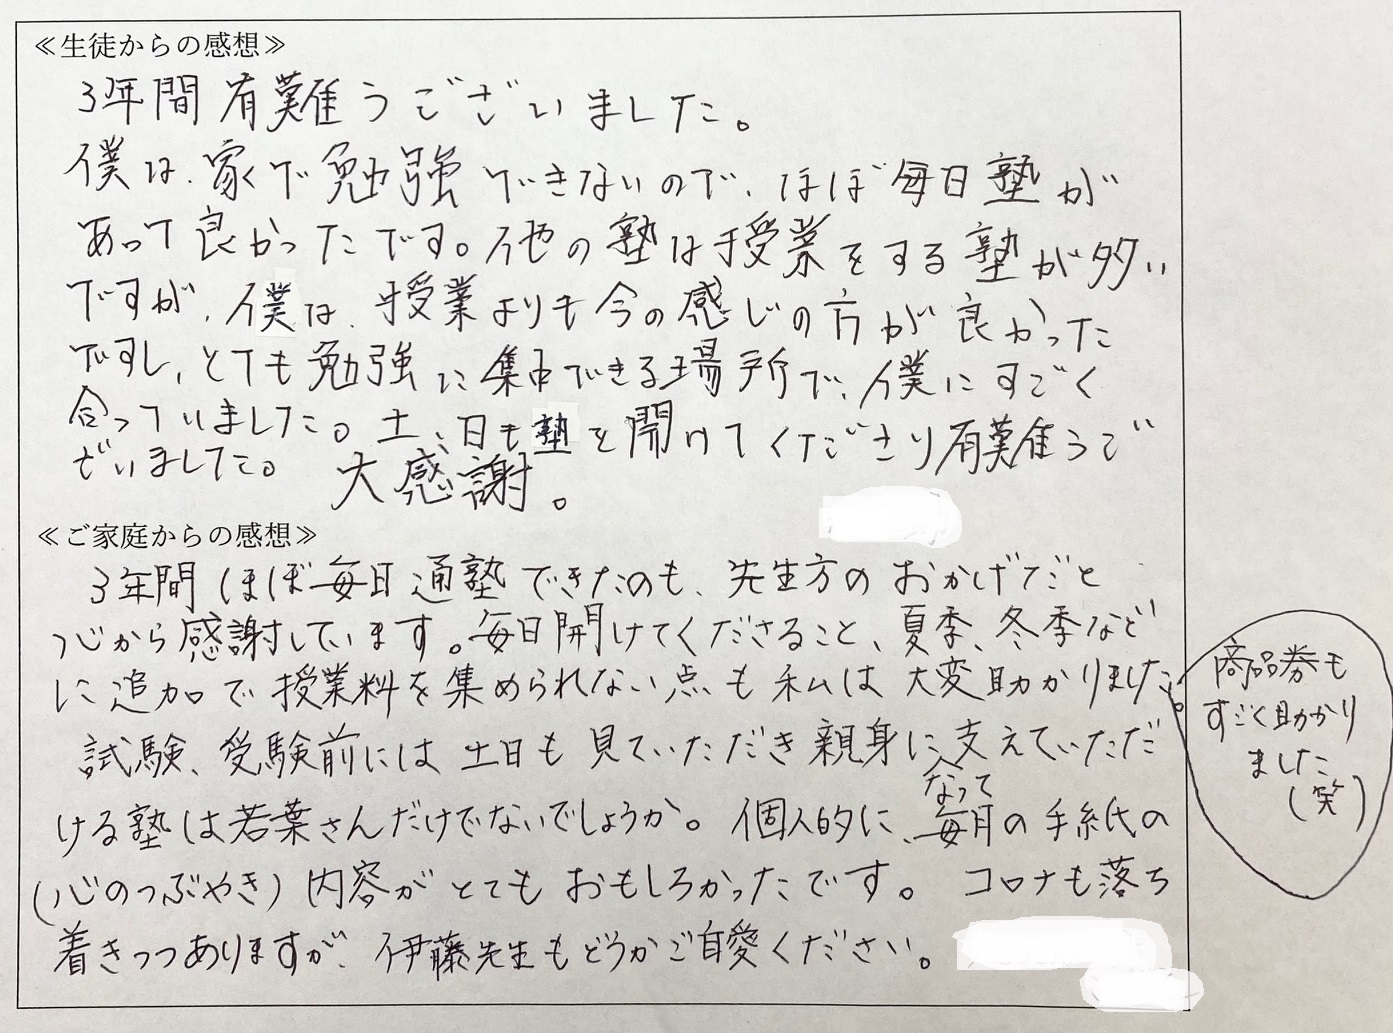 ≪生徒からの感想≫
3年間有難うございました。
僕は、家で勉強できないので、ほぼ毎日塾が
あって良かったです。他の塾は授業をする塾が多い
ですが、僕は、授業よりも今の感じの方が良かった
ですし、とても勉強に集中できる場所で、僕にすごく
合っていました。土、日も塾を開けてくださり有難うご
ざいました。 大感謝。
≪ご家庭からの感想≫
3年間ほぼ毎日通塾できたのも、先生方のおかげだと
心から感謝しています。毎日開けてくださること、夏季、冬季など
に追加で授業料を集められない点も私は大変助かりました。
試験、受験前には土日も見ていただき親身になって支えていただ
ける塾は若葉さんだけでないでしょうか。個人的に、毎月の手紙の
(心のつぶやき)内容がとてもおもしろかったです。 コロナも落ち
着きつつありますが、伊藤先生もどうかご自愛ください。
商品券も
すごく助かり
ました
(笑)